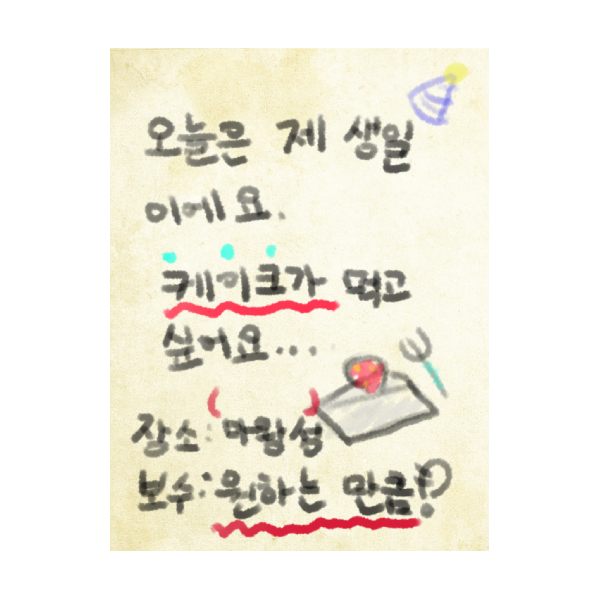 오늘은 제 생일
이에요.
케이크가 먹고
싶어요...
장소: (마람섬)
보수: 원하는 만큼!?